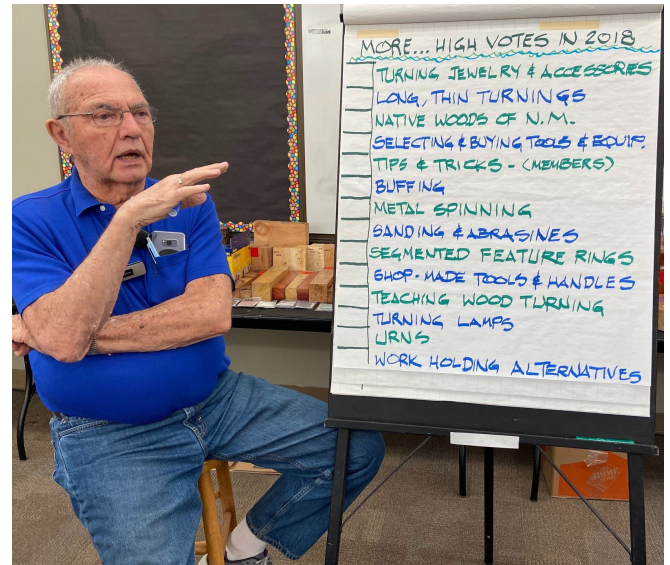 MORE... HIGH VOTES IN 2018
TURNING JEWELRY & ACCESSORIES
LONG, THIN TURNINGS
NATIVE WOODS OF N.M.
SELECTING & BUYING TOOLS & EQUIP.
TIPS & TRICKS - (MEMBERS)
BUFFING
METAL SPINNING
SANDING & ABRASINES
SEGMENTED FEATURE RINGS
SHOP-MADE TOOLS & HANDLES
TEACHING WOOD TURNING
TURNING LAMPS
URNS
WORK HOLDING ALTERNATIVES